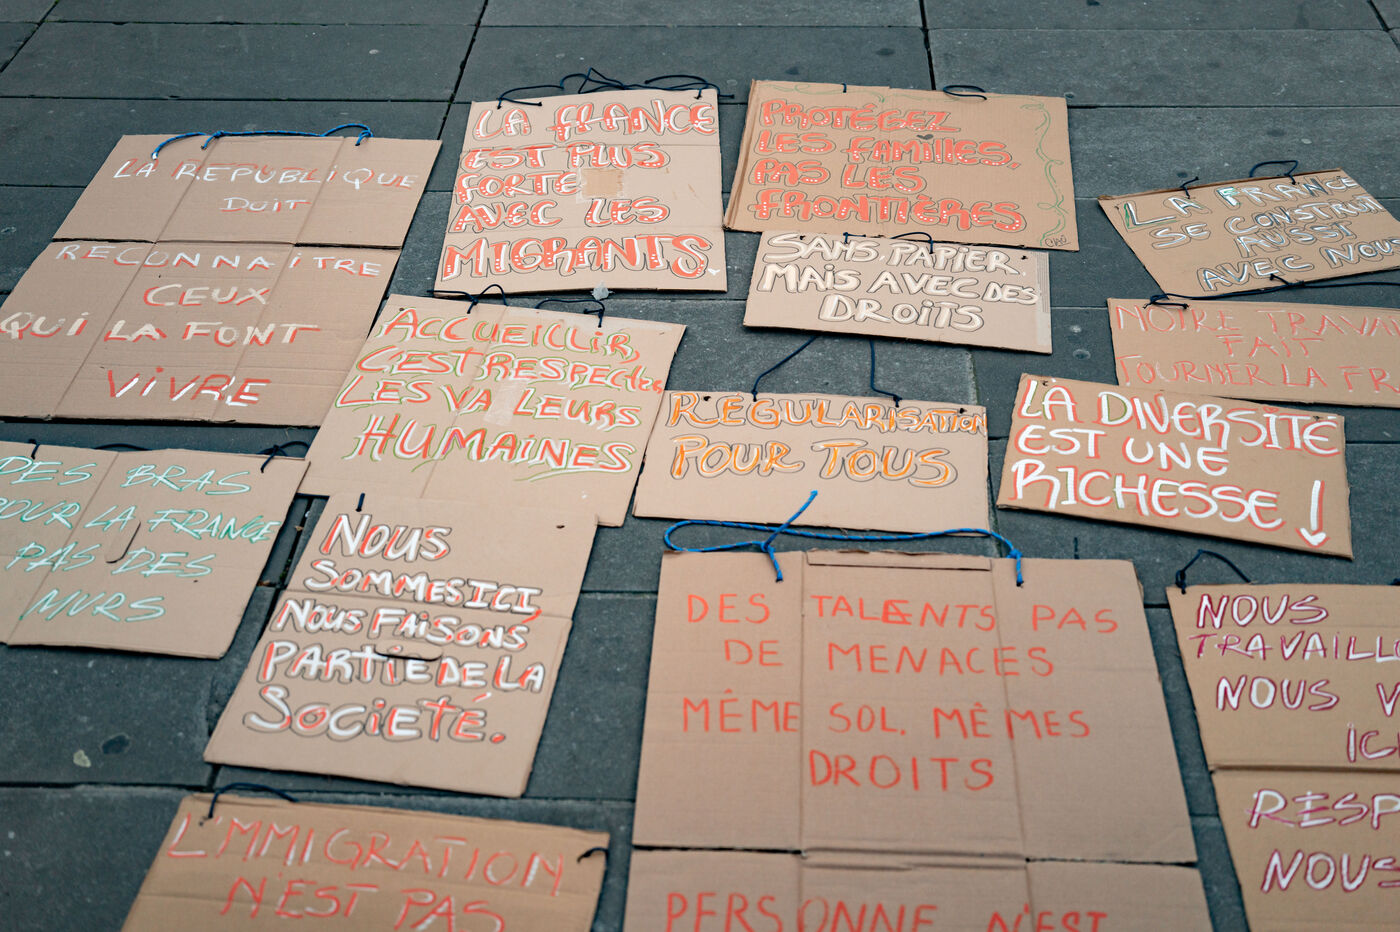 LA FRANCE
EST PLUS
FORTE
AVEC LES
MIGRANTS.
PROTÉGEZ
LES FAMILLES,
PAS LES
FRONTIÈRES
LA REPUBLIQUE
DOIT
RECONNAITRE
CEUX
QUI LA FONT
VIVRE
SANS PAPIER
MAIS AVEC DES
DROITS
LA FRANCE
SE CONSTRUIT
AUSSI
AVEC NOUS
ACCUEILLIR,
C'EST RESPECTER
LES VALEURS
HUMAINES
NOTRE TRAVA
FAIT
TOURNER LA FR
REGULARISATION
POUR TOUS
LA DIVERSITÉ
EST UNE
RICHESSE !
DES BRAS
POUR LA FRANCE
PAS DES
MURS
NOUS
SOMMES ICI,
NOUS FAISONS
PARTIE DE LA
SOCIETÉ.
DES TALENTS PAS
DE MENACES
MÊME SOL, MÊMES
DROITS
PERSONNE N'EST
NOUS
TRAVAILL
NOUS V
ICI
RESP
NOUS
L'IMMIGRATION
N'EST PAS